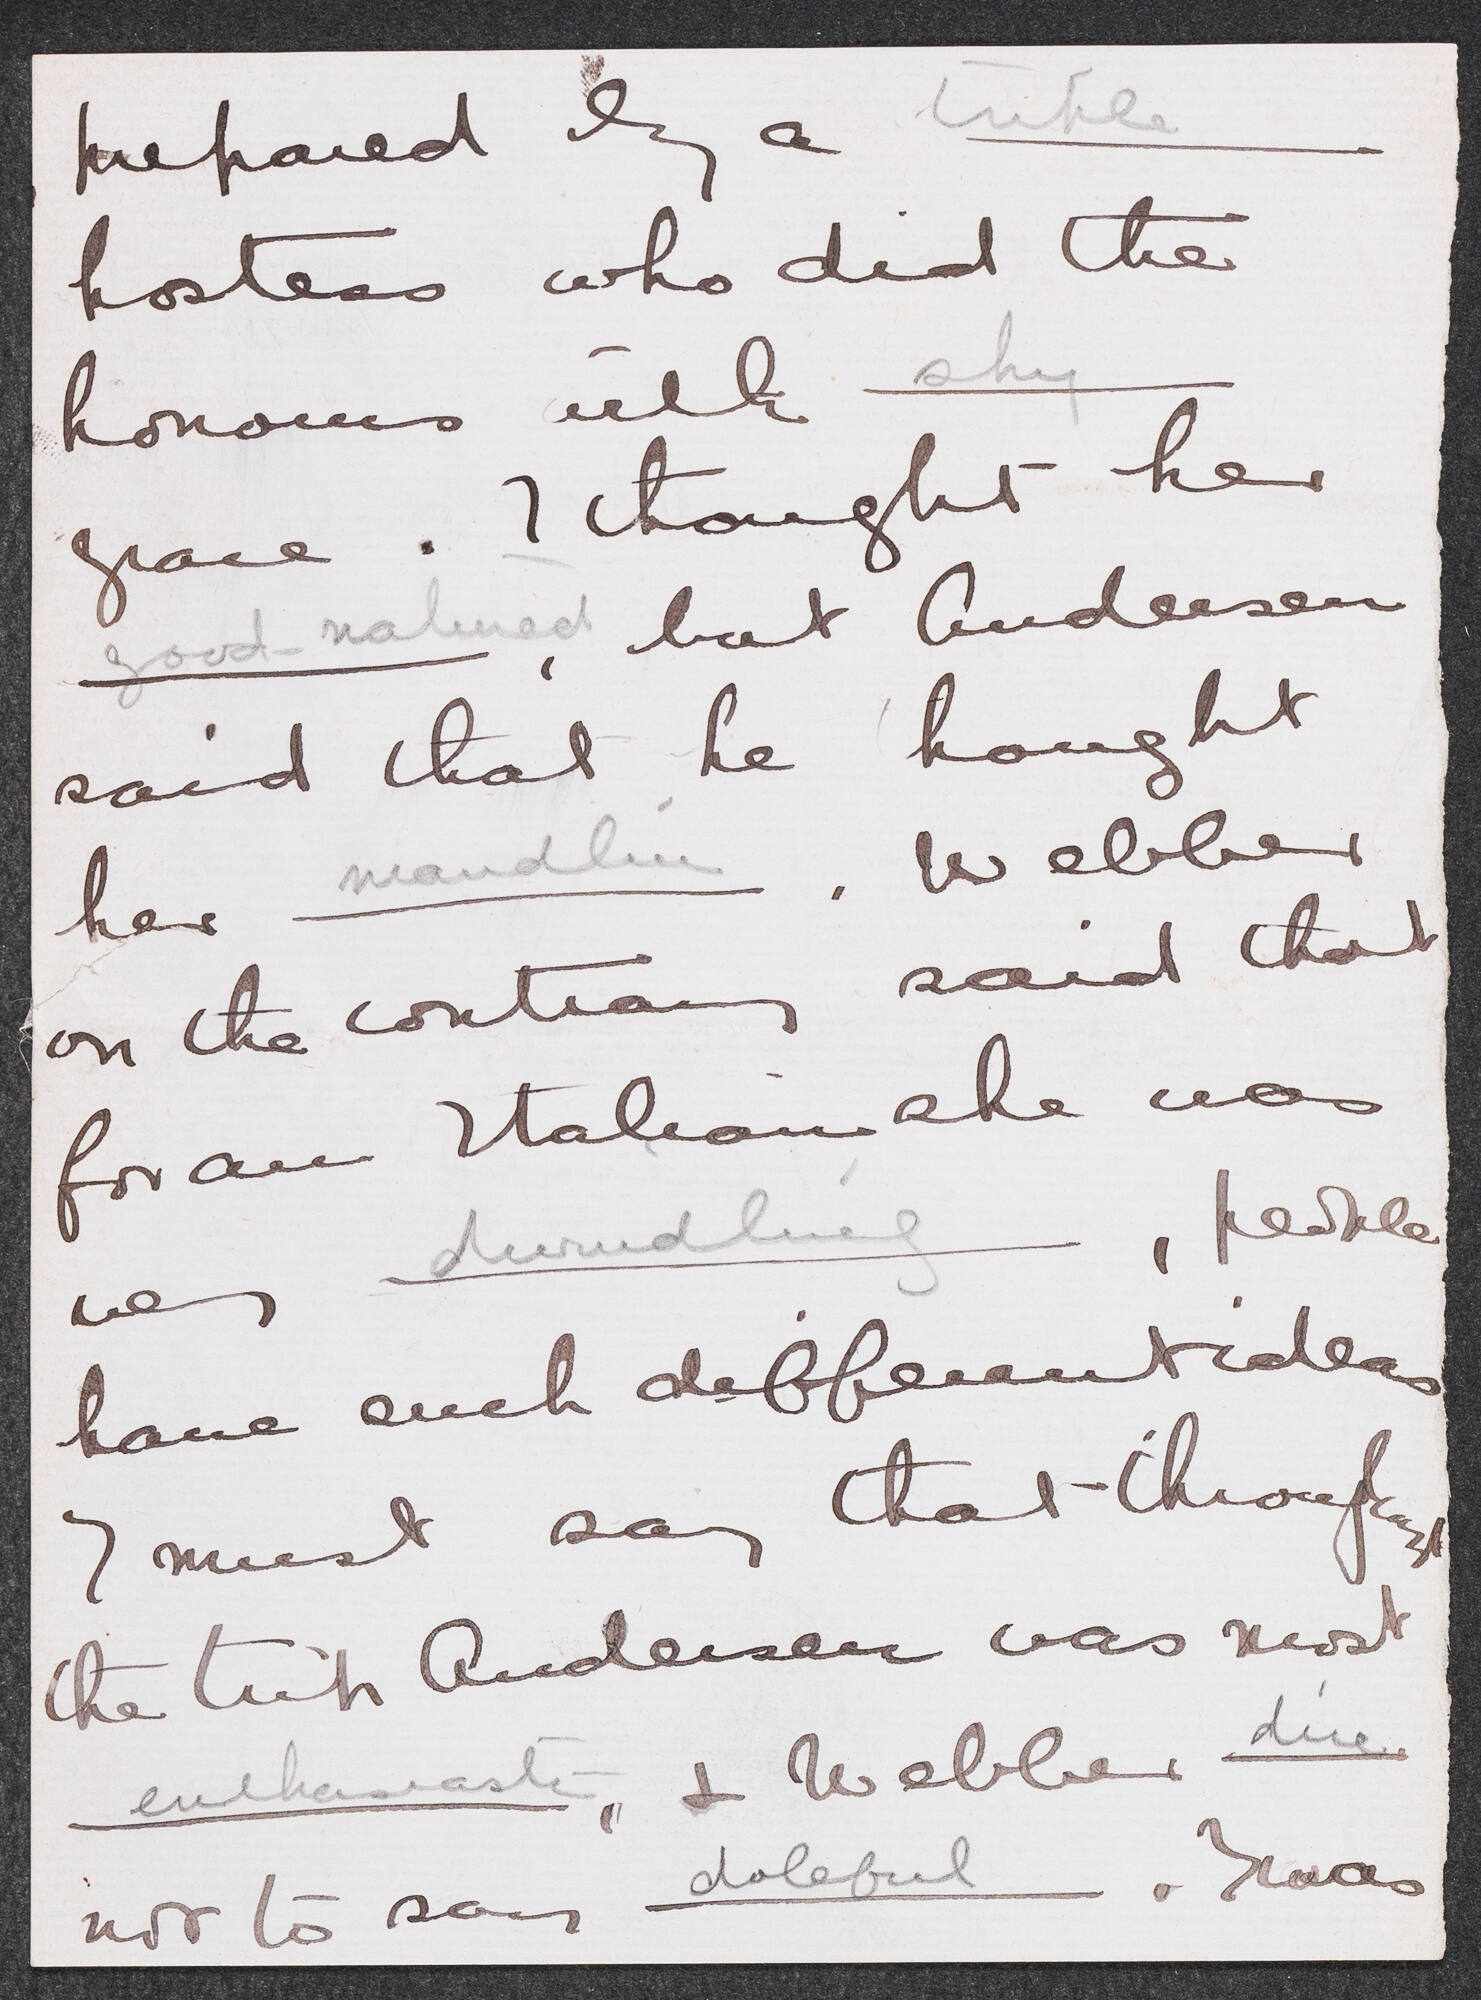 prepared by a triple
hostess who did the
honours with shy
grace. I thought her
good-natured, but Andersen
said that he thought
her maudlin. Webber
on the contrary said that
for an Italian she was
very dwindling, people
have such different ideas
I must say that throughout
the trip Andersen was most
enthusiastic, & Webber dire
not to say doleful. I was